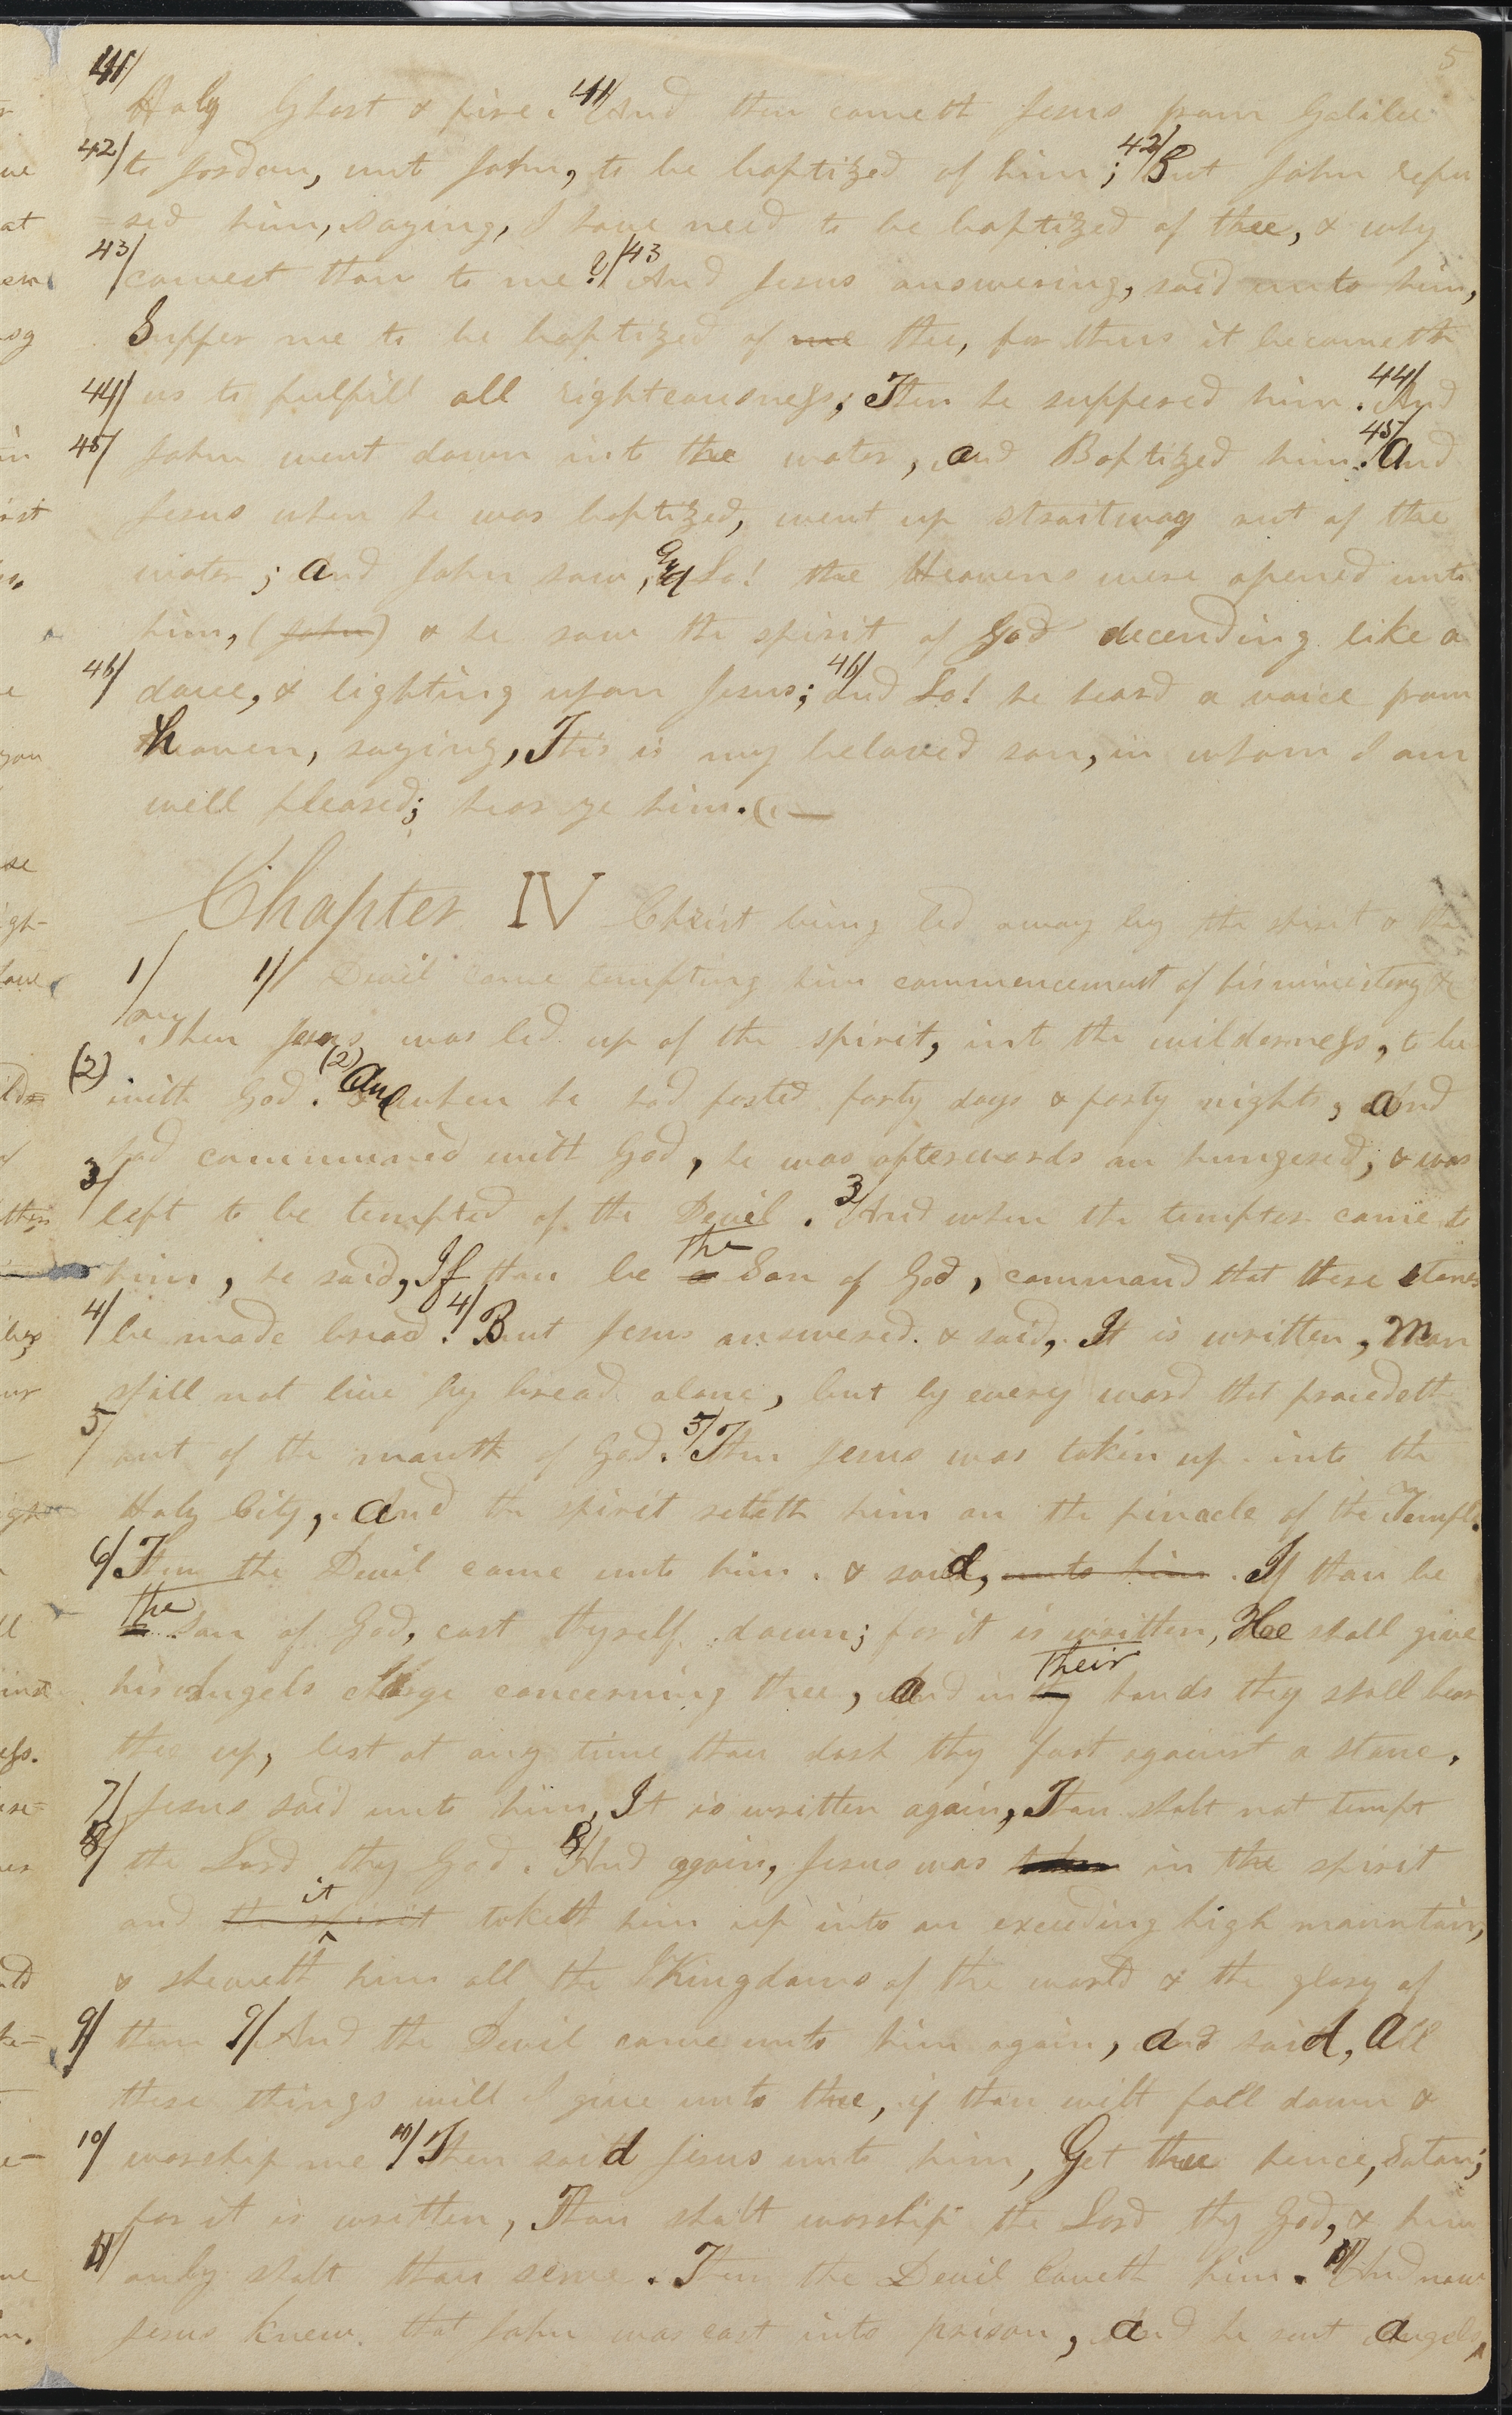 5
41/
Holy Ghost & fire. 41/ And then cometh Jesus from Galilee
42/ to Jordan, unto John, to be baptized of him; 42/ But John refu
=sed him, saying, I have need to be baptized of thee, & why
43/ comest thou to me? /43 And Jesus answering, said unto him,
Suffer me to be baptized of me thee, for thus it becometh
44/ us to fulfill all righteousness; Then he suffered him. 44/ And
45/ John went down into the water, and Baptized him. 45/ And
Jesus when he was baptized, went up straitway out of the
water; and John saw, and Lo! the Heavens were opened unto
him, (John) & he saw the spirit of God decending like a
46/ dove, & lighting upon Jesus; 46/ And Lo! he heard a voice from
heaven, saying, This is my beloved son, in whom I am
well pleased; hear ye him.
Chapter IV Christ being led away by the spirit & the
1/ 1/ Devil came tempting him commencement of his ministery &c
Then Jesus was led up of the spirit, into the wilderness, to be
(2) with God. (2) And when he had fasted forty days & forty nights, and
had communed with God, he was afterwards an hungered, & was
3/ left to be tempted of the Devil. 3/ And when the tempter came to
him, he said, If thou be a the Son of God, command that these stones
4/ be made bread. 4/ But Jesus answered & said, It is written, Man
shall not live by bread alone, but by every word that procedeth
5/ out of the mouth of God. 5/ Then Jesus was taken up into the
Holy City, and the spirit seteth him on the pinacle of the Temple.
6/ Then the Devil came unto him & said, unto him If thou be
the son of God, cast thyself down; for it is written, He shall give
his Angels charge concerning thee, and in thy their hands they shall bear
thee up, lest at any time thou dash thy foot against a stone.
7/ Jesus said unto him, It is written again, Thou shalt not tempt
8/ the Lord thy God. 8/ And again, Jesus was taken in the spirit
and the spirit it taketh him up into an exceeding high mountain,
& sheweth him all the Kingdoms of the world & the glory of
9/ them 9/ And the Devil came unto him again, and said, All
these things will I give unto thee, if thou wilt fall down &
10/ worship me 10/ Then said Jesus unto him, Get thee hence, Satan;
for it is written, Thou shalt worship the Lord thy God, & him
11/ only shalt thou serve. Then the Devil leaveth him. 11/ And now
Jesus knew that John was cast into prison, and he sent Angels,